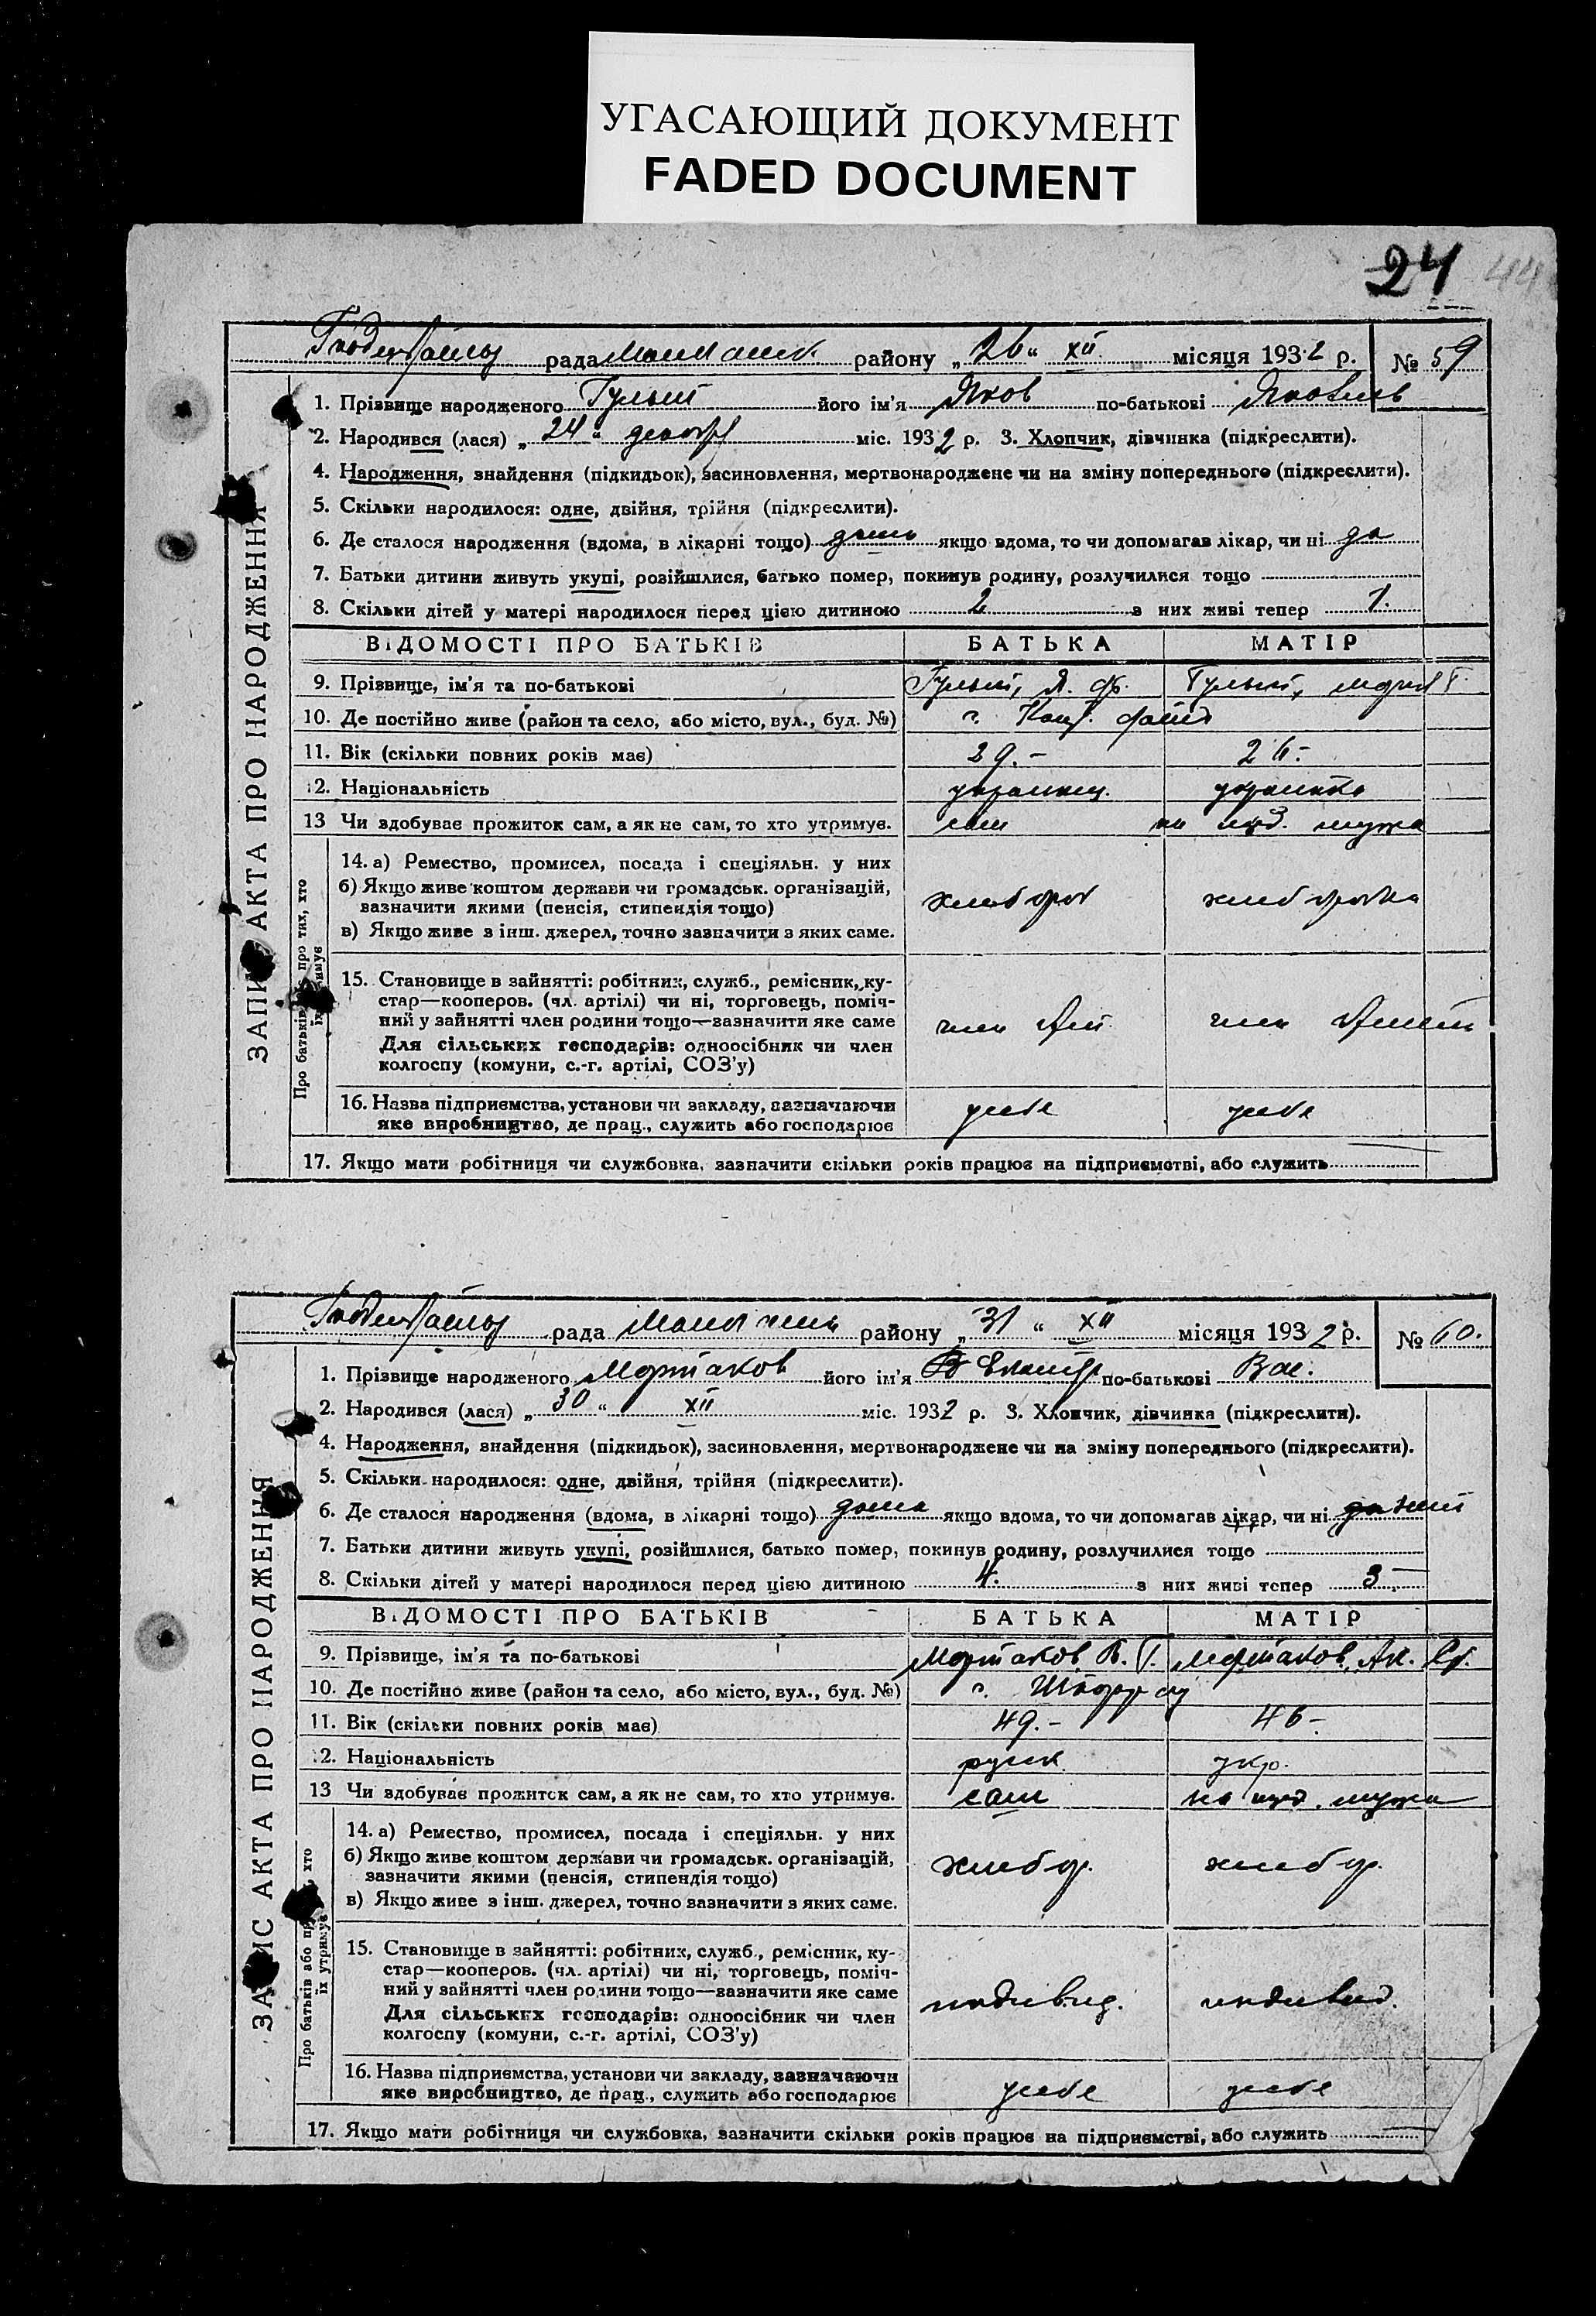 УГАСАЮЩИЙ ДОКУМЕНТ
FADED DOCUMENT
24 44
рада району „ 26 “ XII місяця 1932 р. № 59
ЗАПИ АКТА ПРО НАРОДЖЕННЯ
1. Прізвище народженого його ім'я Яков по-батькові
2. Народився (лася) „ 24 “ міс. 1932 р. 3. Хлопчик, дівчинка (підкреслити).
4. Народження, знайдення (підкидьок), засиновлення, мертвонароджене чи на зміну попереднього (підкреслити).
5. Скільки народилося: одне, двійня, трійня (підкреслити).
6. Де сталося народження (вдома, в лікарні тощо) дома якщо вдома, то чи допомагав лікар, чи ні да
7. Батьки дитини живуть укупі, розійшлися, батько помер, покинув родину, розлучилися тощо
8. Скільки дітей у матері народилося перед цією дитиною 2 з них живі тепер 1.
ВІДОМОСТІ ПРО БАТЬКІВ БАТЬКА МАТІР
9. Прізвище, ім'я та по-батькові
10. Де постійно живе (район та село, або місто, вул., буд. №)
11. Вік (скільки повних років має) 29.- 26.-
12. Національність украинец. украинка
13 Чи здобуває прожиток сам, а як не сам, то хто утримує. сам на ижд. мужа
Про батьків про тих, хто їх имує
14. а) Ремество, промисел, посада і спеціяльн. у них
б) Якщо живе коштом держави чи громадськ. організацій,
вазначити якими (пенсія, стипендія тощо)
в) Якщо живе з інш. джерел, точно зазначити з яких саме.
15. Становище в зайнятті: робітник, служб., ремісник, ку-
стар—кооперов. (чл. артілі) чи ні, торговець, поміч-
ний у зайнятті член родини тощо—вазначити яке саме
член член
Для сільських господарів: одноосібник чи член
колгоспу (комуни, с.-г. артілі, СОЗ'у)
16. Назва підприємства, установи чи закладу, вазначаючи
яке виробництво, де прац., служить або господарює
17. Якщо мати робітниця чи службовка, зазначити скільки років працює на підприємстві, або служить
рада району „ 31 “ XII місяця 1932 р. № 60.
ЗА ИС АКТА ПРО НАРОДЖЕННЯ
1. Прізвище народженого його ім'я по-батькові Вас.
2. Народився (лася) „ 30 “ XII міс. 1932 р. 3. Хлопчик, дівчинка (підкреслити).
4. Народження, знайдення (підкидьок), засиновлення, мертвонароджене чи на зміну попереднього (підкреслити).
5. Скільки народилося: одне, двійня, трійня (підкреслити).
6. Де сталося народження (вдома, в лікарні тощо) дома якщо вдома, то чи допомагав лікар, чи ні
7. Батьки дитини живуть укупі, розійшлися, батько помер, покинув родину, розлучилися тощо
8. Скільки дітей у матері народилося перед цією дитиною 4. з них живі тепер 3
ВІДОМОСТІ ПРО БАТЬКІВ БАТЬКА МАТІР
9. Прізвище, ім'я та по-батькові
10. Де постійно живе (район та село, або місто, вул., буд. №)
11. Вік (скільки повних років має) 49.- 46-
12. Національність русск. укр.
13 Чи здобуває прожиток сам, а як не сам, то хто утримує. сам на ижд. мужа
Про батьків або пр хто їх утримує
14. а) Ремество, промисел, посада і спеціяльн. у них
б) Якщо живе коштом держави чи громадськ. організацій,
зазначити якими (пенсія, стипендія тощо)
в) Якщо живе з інш. джерел, точно зазначити з яких саме.
15. Становище в зайнятті: робітник, служб., ремісник, ку-
стар—кооперов. (чл. артілі) чи ні, торговець, поміч-
ний у зайнятті член родини тощо—вазначити яке саме
индивид. индивид.
Для сільських господарів: одноосібник чи член
колгоспу (комуни, с.-г. артілі, СОЗ'у)
16. Назва підприємства, установи чи закладу, зазначаючи
яке виробництво, де прац., служить або господарює
17. Якщо мати робітниця чи службовка, зазначити скільки років працює на підприємстві, або служить